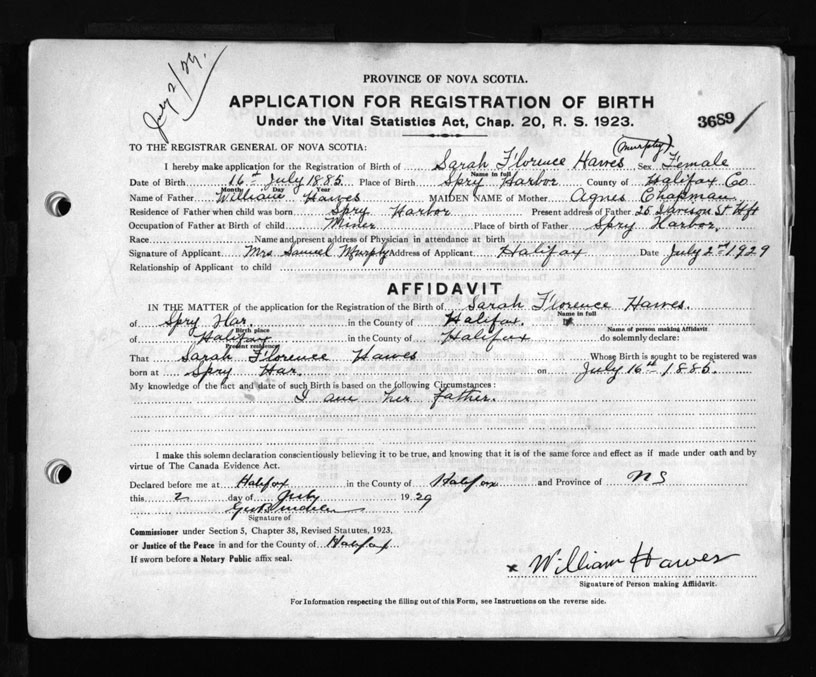 July 2/29.
PROVINCE OF NOVA SCOTIA.
APPLICATION FOR REGISTRATION OF BIRTH
Under the Vital Statistics Act, Chap. 20, R. S. 1923.
3689
TO THE REGISTRAR GENERAL OF NOVA SCOTIA:
(Murphy)
I hereby make application for the Registration of Birth of Sarah Florence Hawes Sex Female
Name in full
Date of Birth 16th July 1885 Place of Birth Spry Harbor County of Halifax Co
Month Day Year
Name of Father William Hawes MAIDEN NAME of Mother Agnes Chapman
Residence of Father when child was born Spry Harbor Present address of Father 26 St Hfx
Occupation of Father at Birth of child Miner Place of birth of Father Spry Harbor.
Race Name and present address of Physician in attendance at birth
Signature of Applicant Mrs Samuel Murphy Address of Applicant Halifax Date July 2nd 1929
Relationship of Applicant to child
AFFIDAVIT
IN THE MATTER of the application for the Registration of the Birth of Sarah Florence Hawes.
Name in full
of Spry Har. in the County of Halifax.
Birth place Name of person making Affidavit
of Halifax in the County of Halifax do solemnly declare:
Present residence
That Sarah Florence Hawes Whose Birth is sought to be registered was
born at Spry Har. on July 16th 1885.
My knowledge of the fact and date of such Birth is based on the following Circumstances:
I am her Father.
I make this solemn declaration conscientiously believing it to be true, and knowing that it is of the same force and effect as if made under oath and by
virtue of The Canada Evidence Act.
Declared before me at Halifax in the County of Halifax and Province of NS
this 2 day of July 1929
Signature of
Commissioner under Section 5, Chapter 38, Revised Statutes, 1923,
or Justice of the Peace in and for the County of Halifax
If sworn before a Notary Public affix seal.
x William Hawes
Signature of Person making Affidavit.
For Information respecting the filling out of this Form, see Instructions on the reverse side.